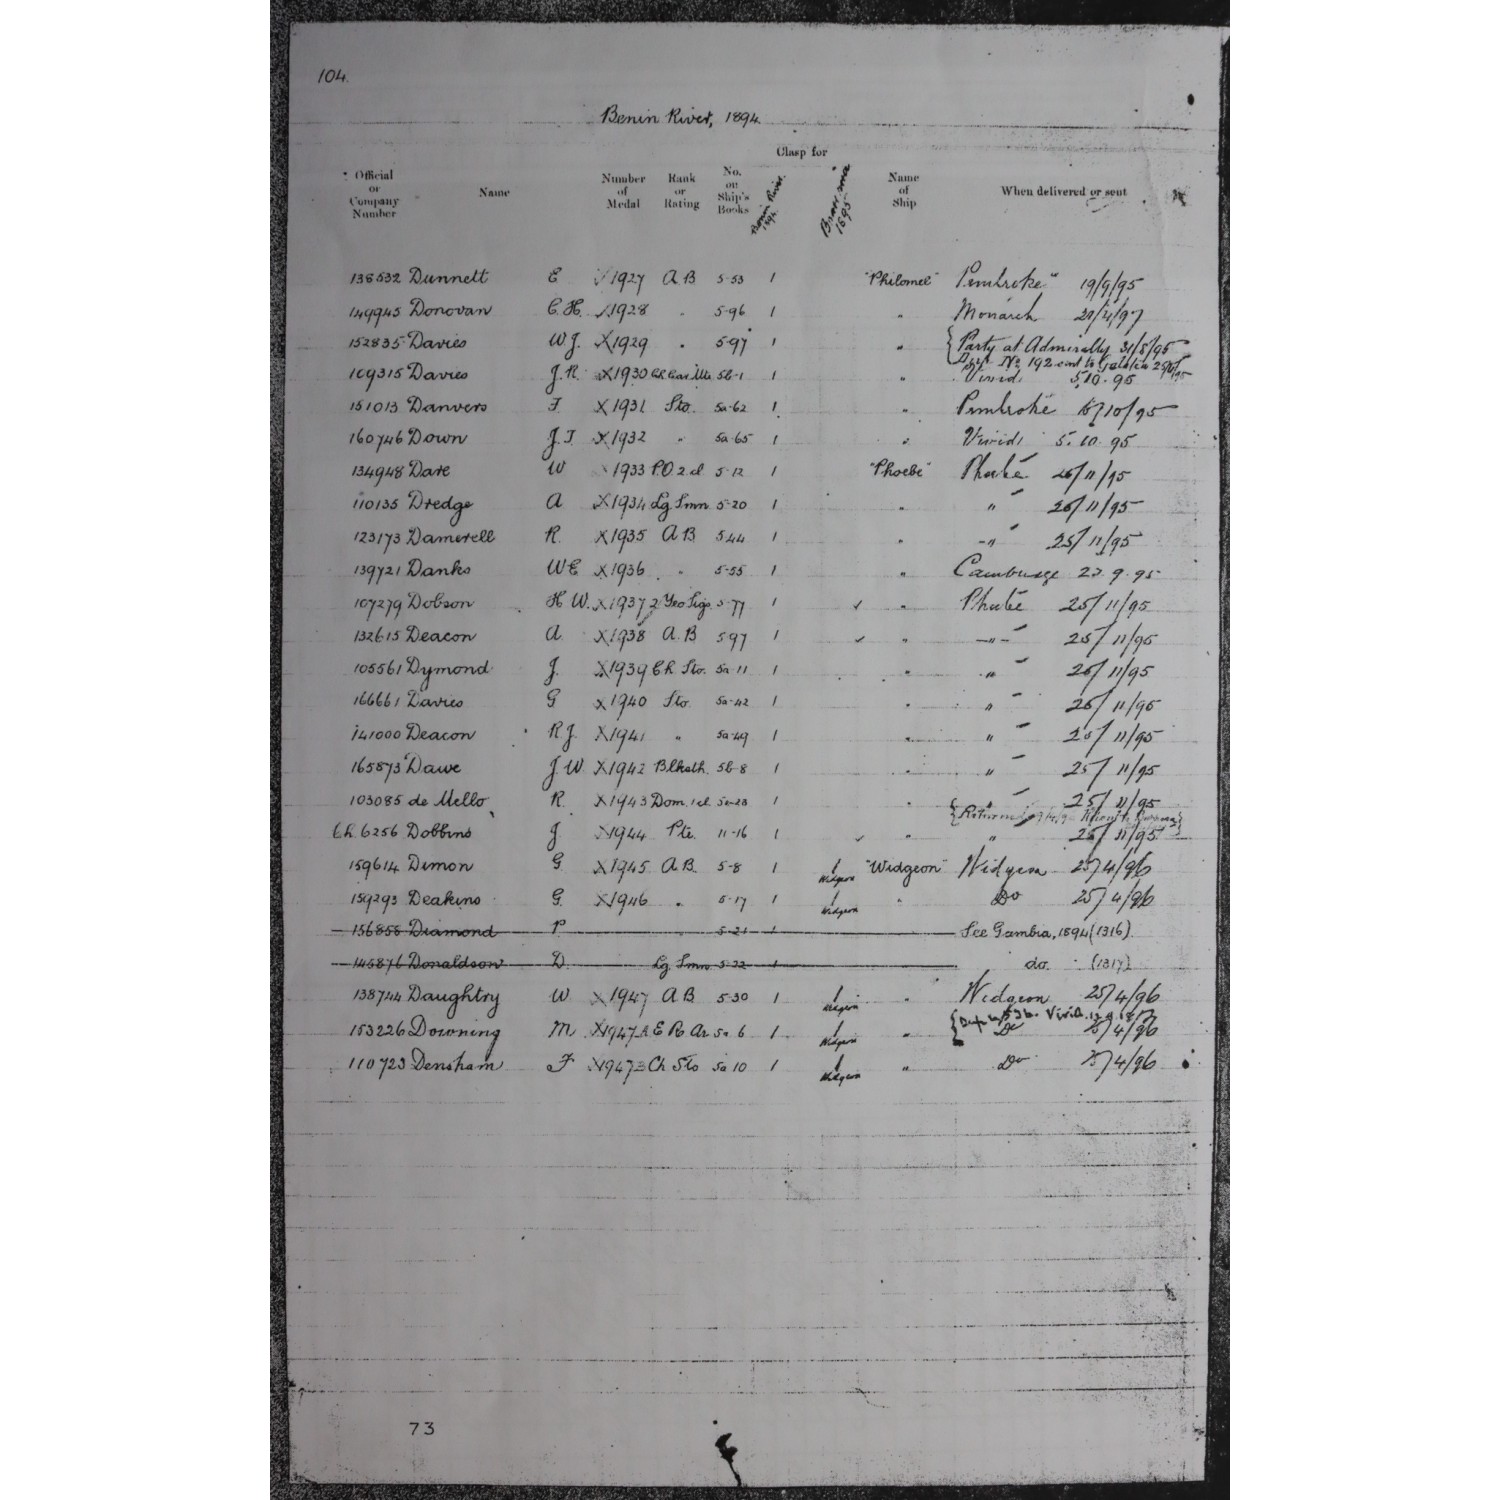 104.
Benin River, 1894.
Clasp for
Official or Company Number Name Number of Medal Rank or Rating No. on Ship's Books Benin River 1894 Brass 1895 Name of Ship When delivered or sent
138532 Dunnett E 1927 A B 5-53 1 "Philomel" Pembroke" 19/9/95
149945 Donovan C. H. 1928 " 5-96 1 " Monarch 21/4/97
152835 Davies W J. X1929 " 5-97 1 " { Party at Admiralty 31/8/95
No 192 sent to Galatea
109315 Davies J. R. X1930 5b-1 1 " Vivid. 5.10.95
151013 Danvers F. X1931 Sto. 5a-62 1 " Pembroke 15/10/95
160746 Down J. T X1932 " 5a-65 1 " Vivid 5.10.95
134948 Dare W 1933 P.O 2 cl 5-12 1 "Phoebe" Phoebe 25/11/95
110135 Dredge A X1934 Lg. Smn 5-20 1 " " 25/11/95
123173 Damerell R. X1935 A B. 5-44 1 " " 25/11/95
139721 Danks W E X1936 " 5-55 1 " Cambridge 27.9.95
107279 Dobson H W. X1937 2 Yeo Sigs 5-77 1 ✓ " Phoebe 25/11/95
132615 Deacon A. X1938 A. B 5-97 1 ✓ " " 25/11/95
105561 Dymond J. X1939 Ch Sto. 5a-11 1 " " 25/11/95
166661 Davies G X1940 Sto. 5a-42 1 " " 25/11/95
141000 Deacon R J. X1941 " 5a-49 1 " " 25/11/95
165873 Dawe J W X1942 Blksth. 5b-8 1 " " 25/11/95
103085 de Mello R. X1943 Dom. 1 cl 5c-23 1 " " 25/11/95
{ Returned
Ch. 6256 Dobbins J. X1944 Pte. 11-16 1 ✓ " " 25/11/95
159614 Dimon G X1945 A B. 5-8 1 1 Widgeon "Widgeon" Widgeon 25/4/96
159293 Deakins G. X1946 " 5-17 1 1 Widgeon " Do 25/4/96
156858 Diamond P " 5-21 1 See Gambia, 1894 (1316)
145876 Donaldson D Lg Smn 5-22 1 do. (1317)
138744 Daughtry W X1947 A B 5-30 1 1 Widgeon " Widgeon 25/4/96
{ Vivid.
153226 Downing M X1947A E R Ar 5a 6 1 1 Widgeon " Do 25/4/96
110723 Densham F X1947B Ch Sto 5a 10 1 1 Widgeon " Do 25/4/96
73